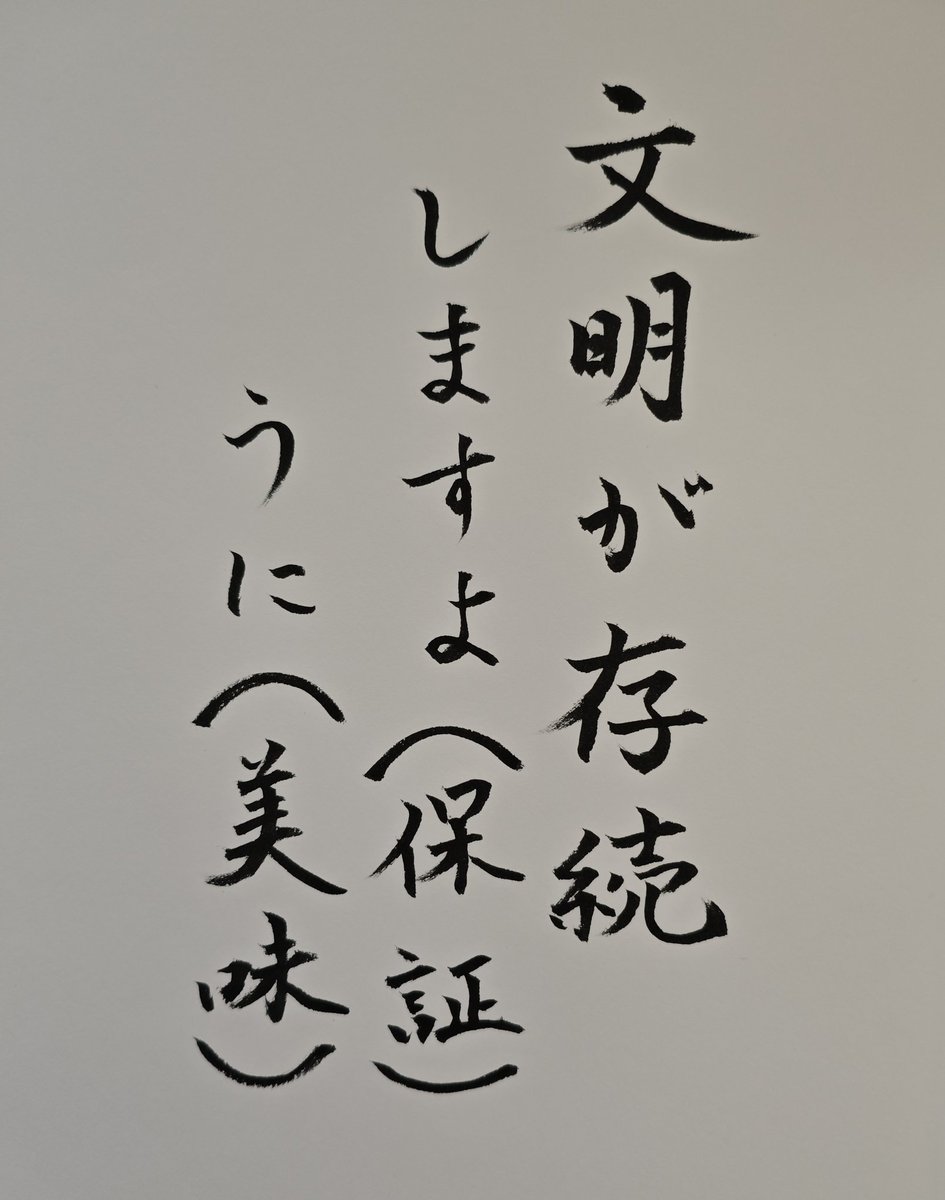 文明が存続
しますよ（保証）
うに（美味）